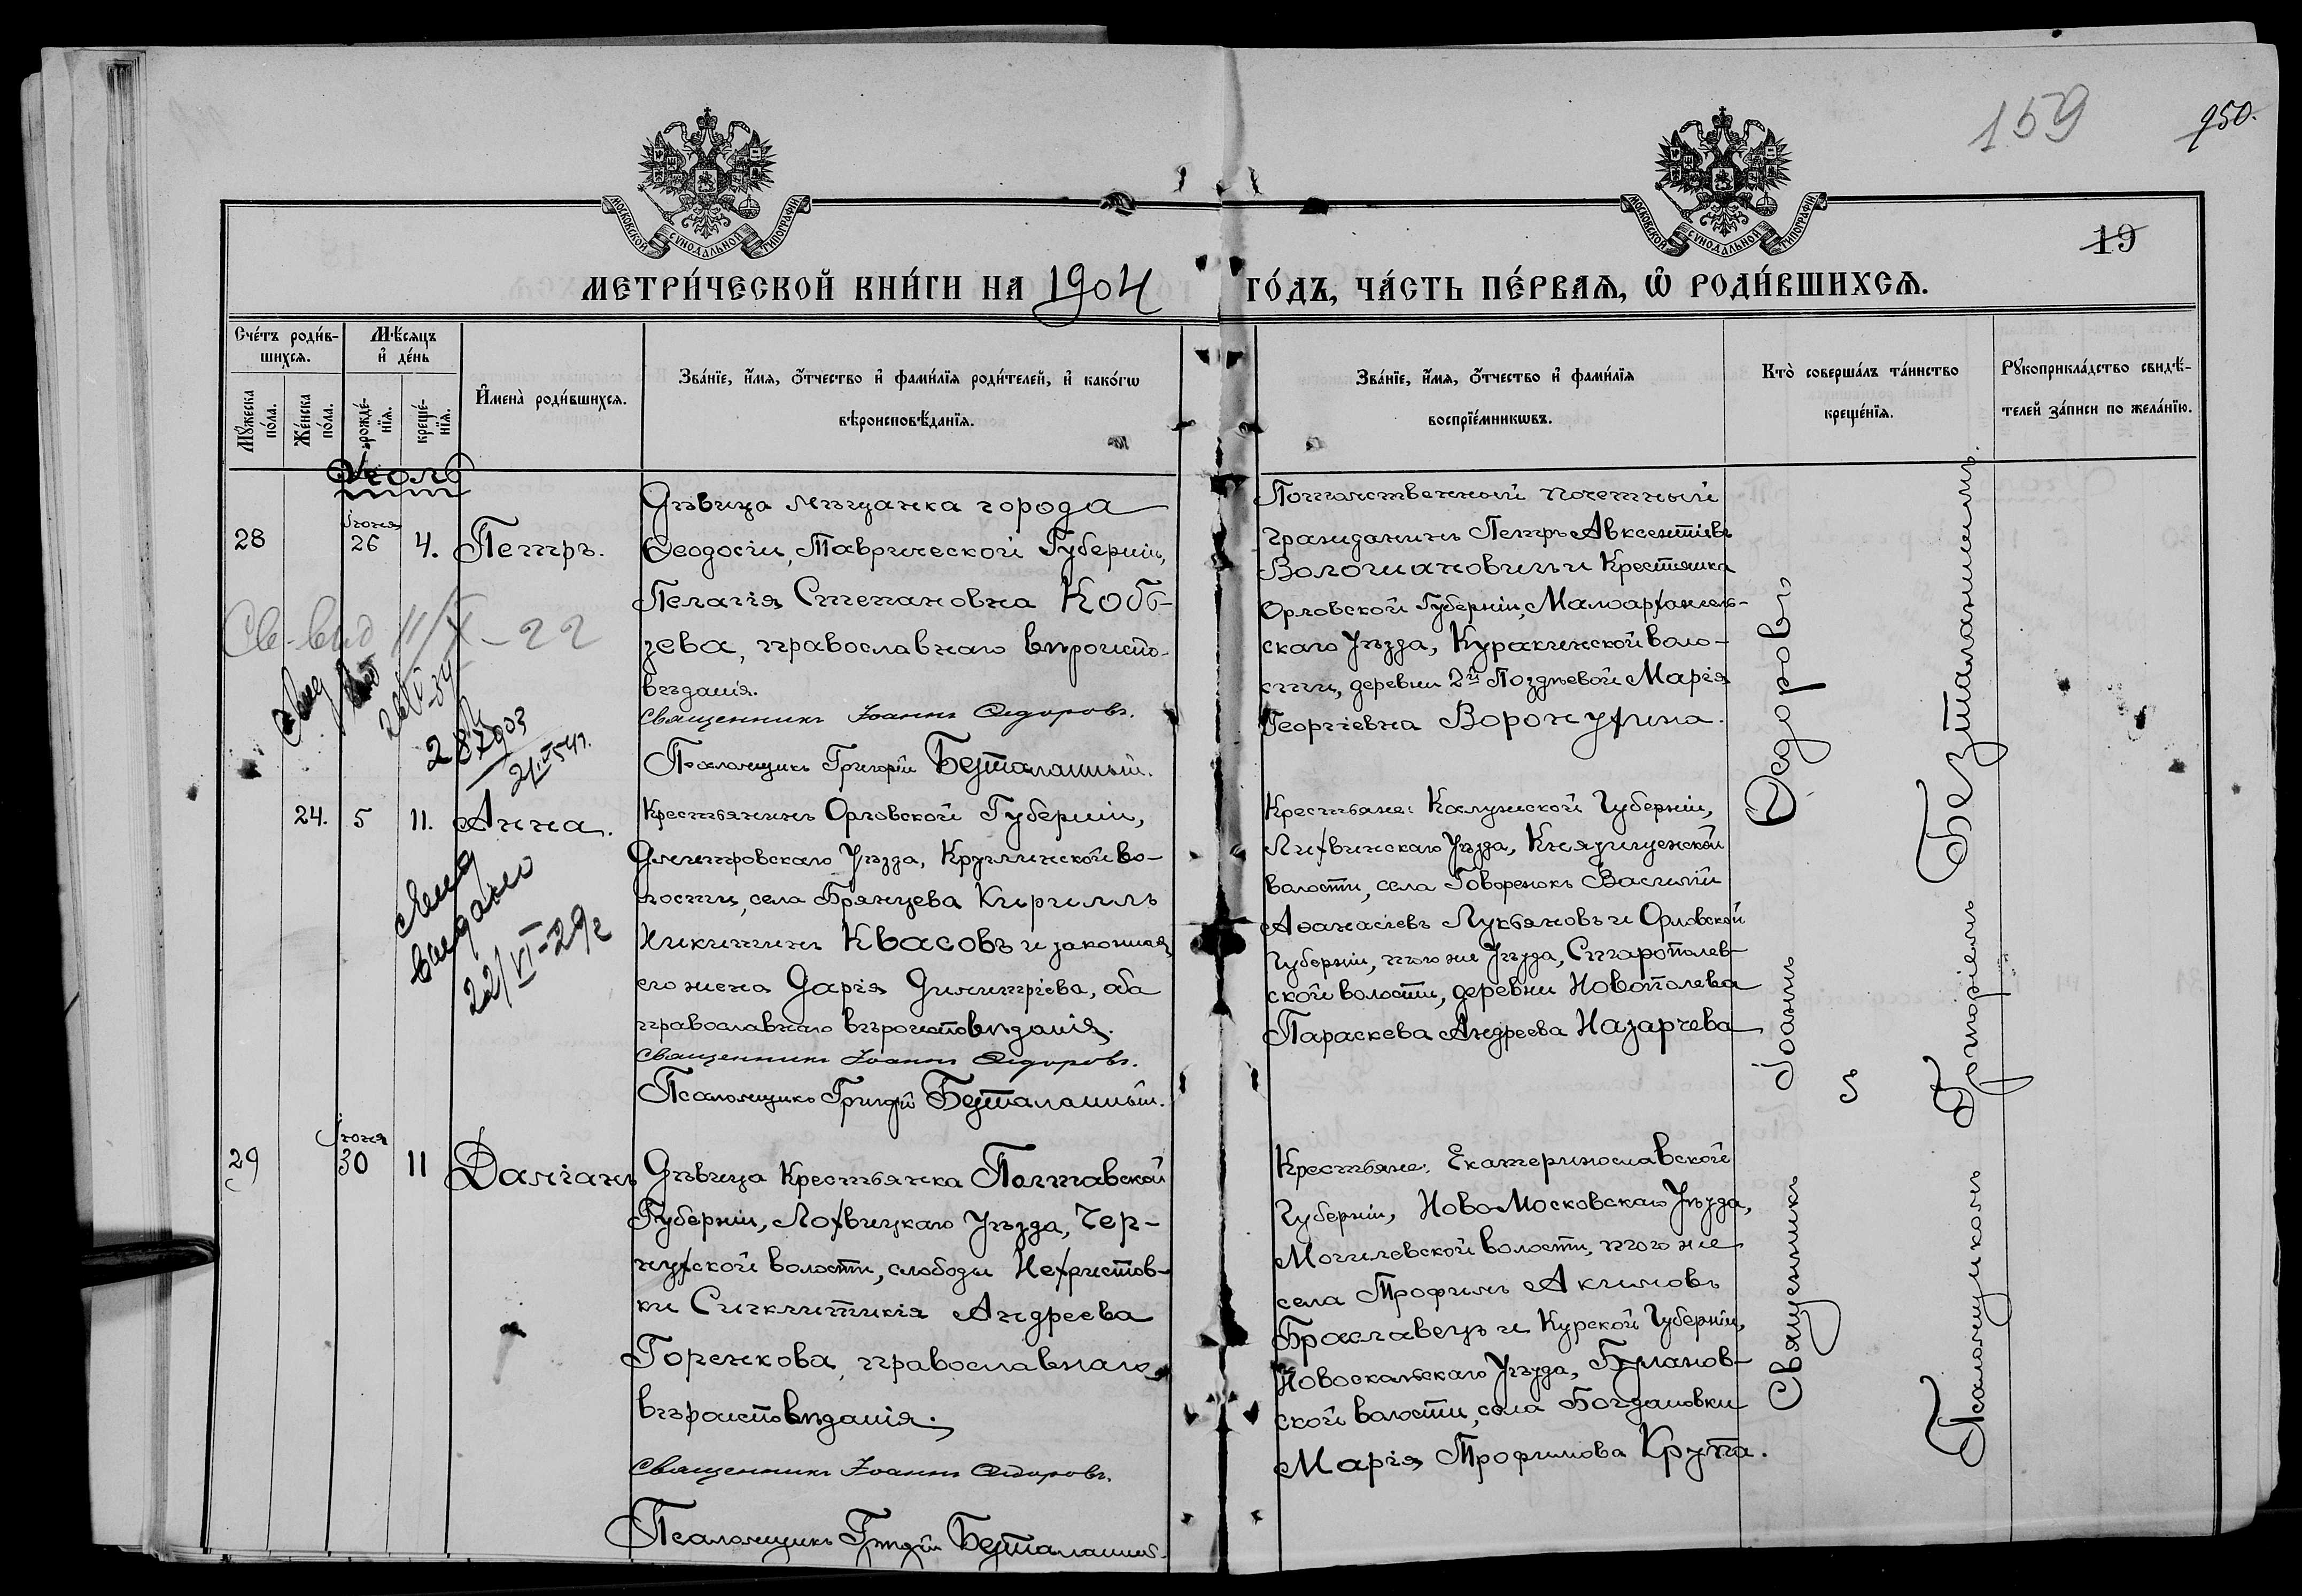 159
950.
19
МОСКОВСКОЙ СѴНОДАЛЬНОЙ ТИПОГРАФІИ
МОСКОВСКОЙ СѴНОДАЛЬНОЙ ТИПОГРАФІИ
МЕТРИ́ЧЕСКОЙ КНИ́ГИ НА 1904
ГО́ДЪ, ЧА́СТЬ ПЕ́РВАѦ, Ѽ РОДИ́ВШИХСѦ.
Сче́тъ роди́в-
шихсѧ.
Мѣ́сяцъ
и҆ де́нь
Мꙋ́жеска
по́ла.
Же́нска
по́ла.
рожде́-
нїѧ.
креще́-
нїѧ.
И҆мена̀ роди́вшихсѧ.
Зва́нїе, и҆́мѧ, ѻ҆́тчество и҆ фами́лїѧ роди́телей, и҆ како́гѡ
вѣроисповѣ́данїѧ.
Зва́нїе, и҆́мѧ, ѻ҆́тчество и҆ фами́лїѧ
воспрїе́мникѡвъ.
Кто̀ соверша́лъ та́инство
креще́нїѧ.
Рꙋкоприкла́дство свидѣ́-
телей за́писи по жела́нїю.
Іюль
28
Іюня
26
4.
Петръ.
Дѣвица мѣщанка города
Ѳеодосіи, Таврической Губерніи,
Пелагія Степановна Кобы-
зева, православнаго вѣроиспо-
вѣданія.
Священникъ Іоаннъ Ѳедоровъ.
Псаломщикъ Григорій Безталанный.
Потомственный почетный
гражданинъ Петръ Авксентіевъ
Волошановичъ и Крестьянка
Орловской Губерніи, Малоархангель-
скаго Уѣзда, Куракинской воло-
сти, деревни 2й Поздѣевой Марія
Георгіевна Воронухина.
Св-вид 11/X-22
24.
5
11.
Анна.
Крестьянинъ Орловской Губерніи,
Дмитровскаго Уѣзда, Круглинской во-
лости, села Брянцева Кириллъ
Никитинъ Квасовъ и законная
его жена Дарія Димитріева, оба
православнаго вѣроисповѣданія.
Священникъ Іоаннъ Ѳедоровъ.
Псаломщикъ Григорій Безталанный.
Крестьяне: Калужской Губерніи,
Лихвинскаго Уѣзда, Княжищенской
волости, села Говоренокъ Василій
Аѳанасіевъ Лукьяновъ и Орловской
Губерніи, того же Уѣзда, Старополев-
ской волости, деревни Новополева
Параскева Андреева Назарчева
выдано
22/VI-29г
29
Іюня
30
11
Даміанъ
Дѣвица Крестьянка Полтавской
Губерніи, Лохвицкаго Уѣзда, Чер-
нухской волости, слободы Нехристов-
ки Сигклитикія Андреева
Горенкова, православнаго
вѣроисповѣданія.
Священникъ Іоаннъ Ѳедоровъ.
Псаломщикъ Григорій Безталанный.
Крестьяне: Екатеринославской
Губерніи, НовоМосковскаго Уѣзда,
Могилевской волости, того же
села Трофимъ Акимовъ
Браславецъ и Курской Губерніи,
Новооскольскаго Уѣзда, Булановв-
ской волости, села Богдановки
Марія Трофимова Крупа.
Священникъ Іоаннъ Ѳедоровъ
Псаломщикомъ Григоріемъ Безталаннымъ.